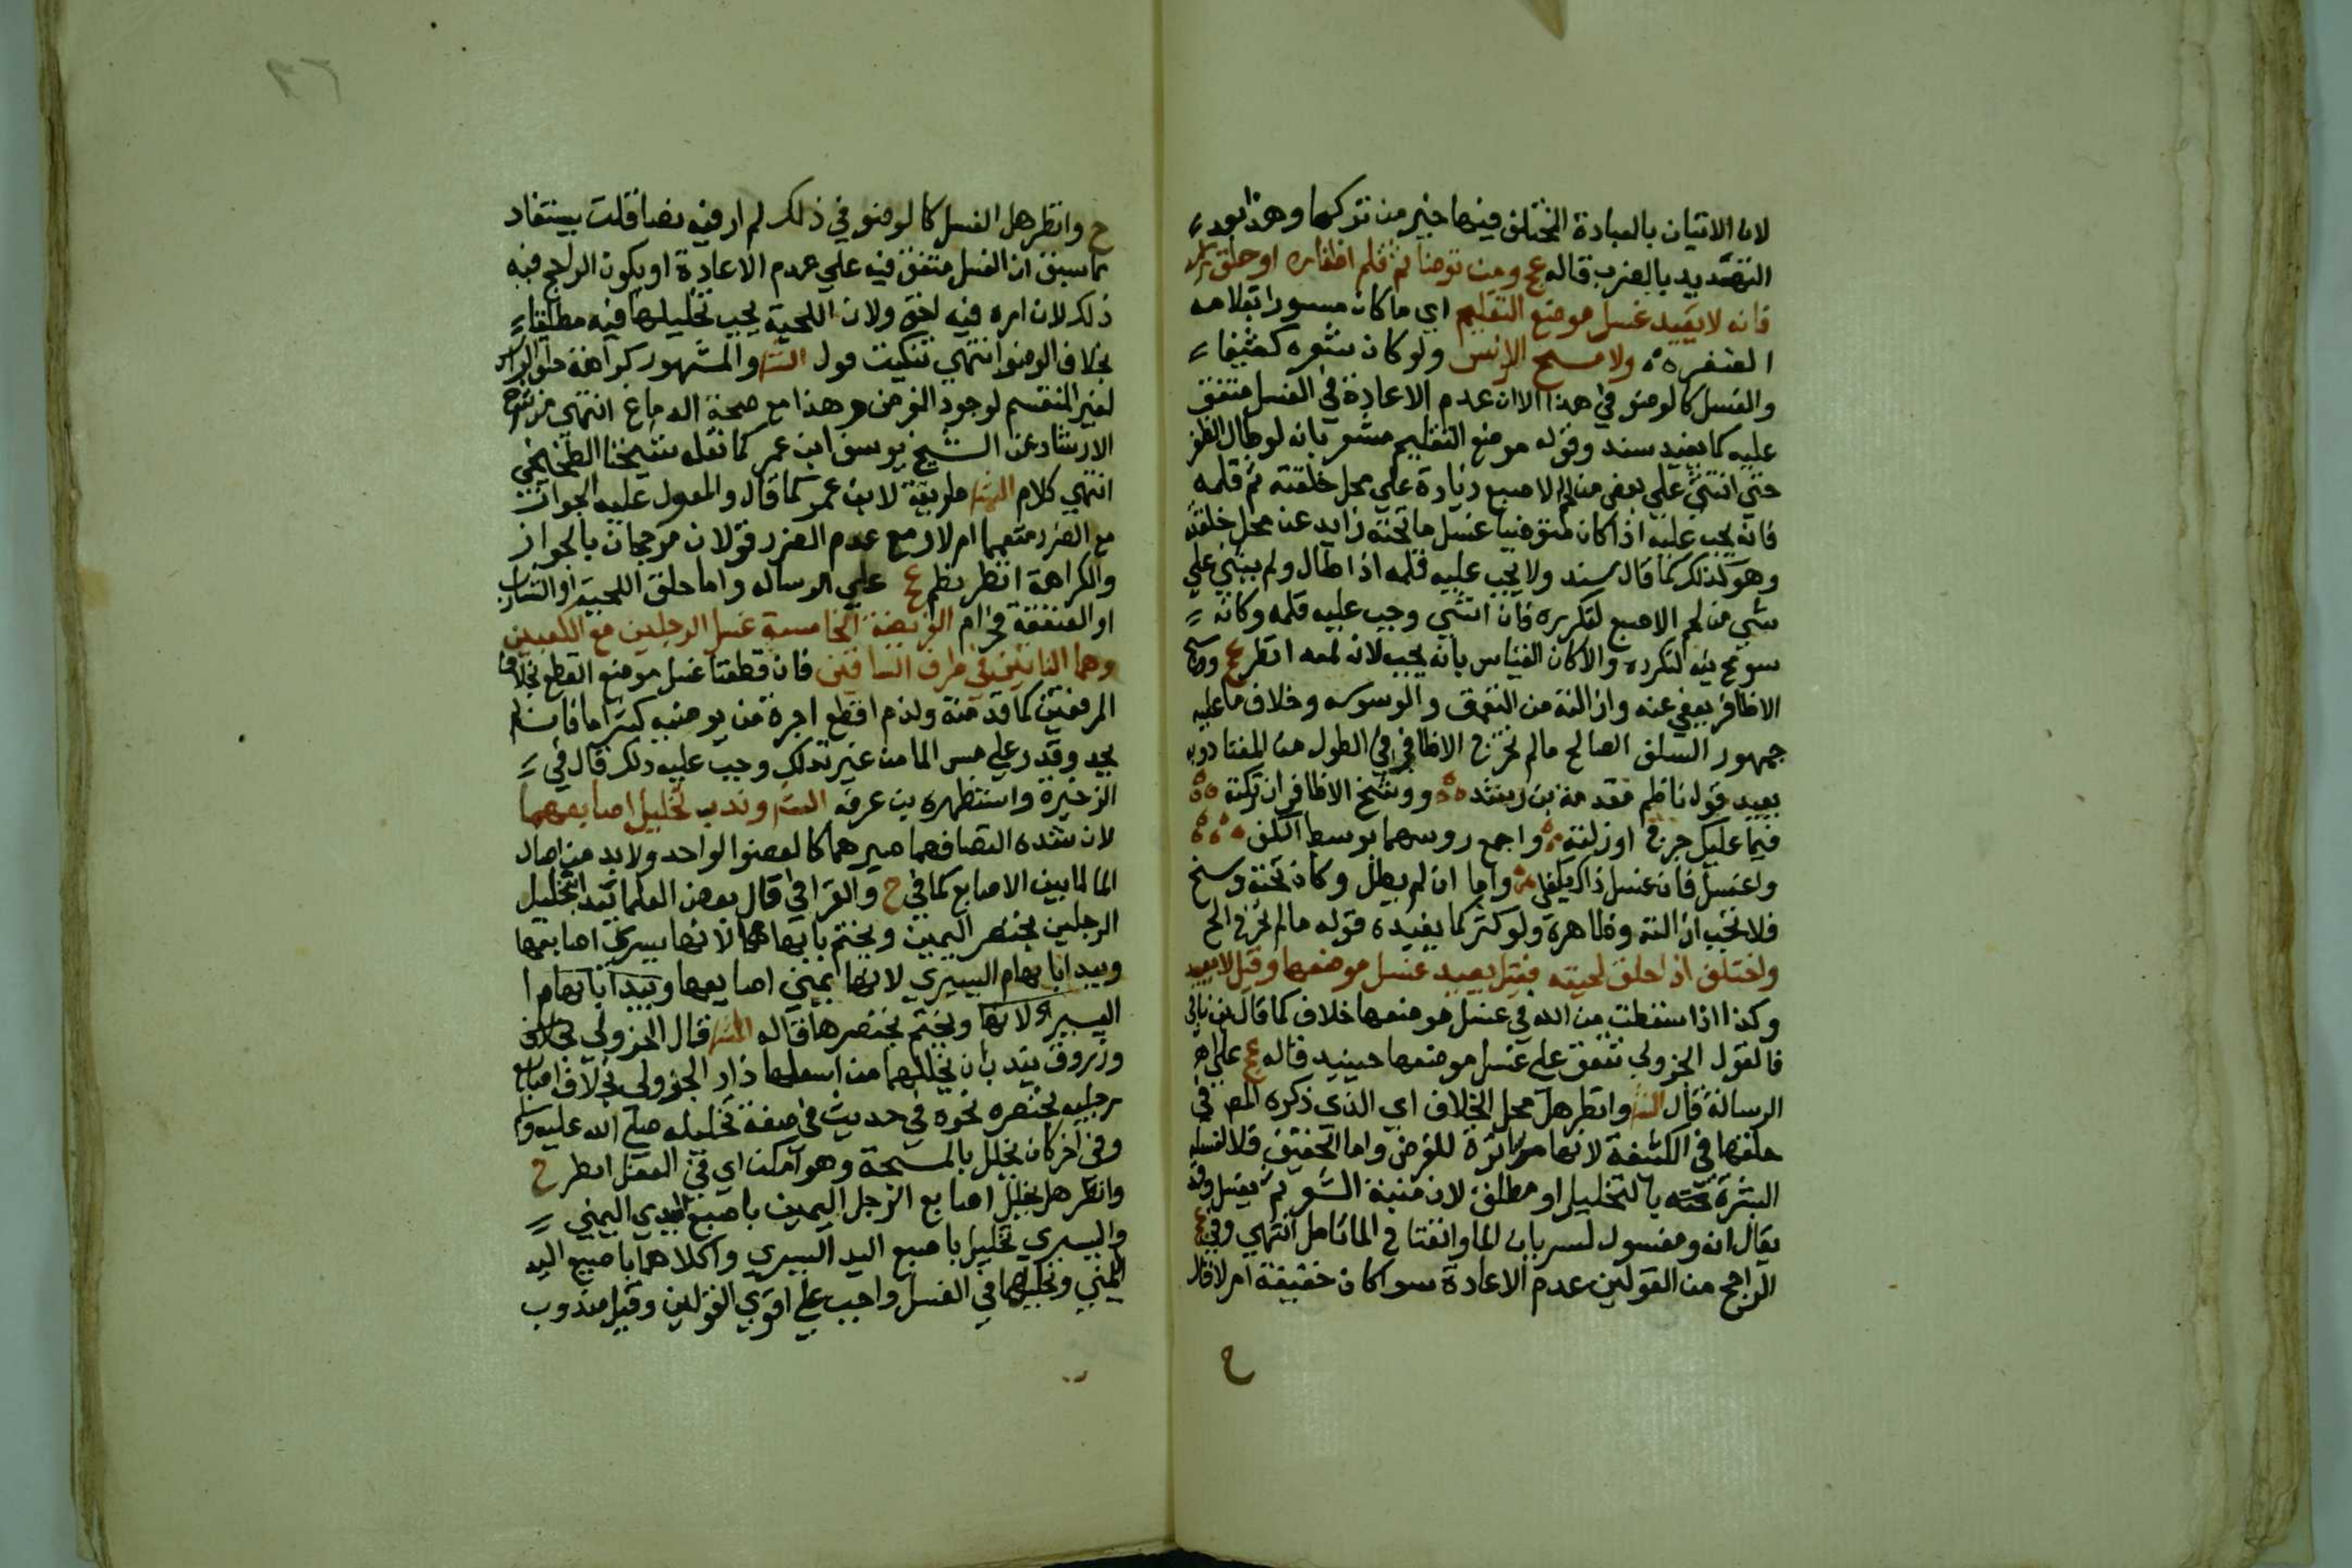 لان الاتيان بالعبادة المختلف فيها خير من تركها وهذا بعد
التهديد بالضرب قاله عج ومن توضا ثم قلم اظفاره او حلق راسه
فانه لا يعيد غسل موضع التقليم اي ما كان مستورا بقلامه
الظفره ولا مسح الراس ولو كان شعره كثيفا
والغسل كالوضو في هذا الا ان عدم الاعادة في الغسل متفق
عليه كما يفيد سند وقوله موضع التقليم مشعر بانه لو طال الظفر
حتي انثني علي بعض من لحم الاصبع زيادة علي محل خلقته ثم قلمه
فانه يجب عليه اذا كان متوضيا غسل ما تحته زايد عن محل خلقته
وهو كذلك كما قال سند ولا يجب عليه قلمه اذا طال ولم ينثني علي
شي من لحم الاصبع لتكرره فان انثني وجب عليه قلمه وكانه
سومح فيه لتكرره والا كان القياس بانه يجب لانه لمعه انظر عج ووسخ
الاظافر يعفي عنه وازالته من التعمق والوسوسه وخلاف ما عليه
جمهور السلف الصالح مالم تخرج الاظافر في الطول عن المعتاد وبه
يقيد قول ناظم مقدمة بن رشد ووسخ الاظافر ان تركته
فما عليك حرج او زلته واجمع روسها بوسط الكف
واغسل فان غسل ذاك يكفي واما ان لم يطل وكان تحته وسخ
فلا تجب ازالته وظاهره ولو كثر كما يفيده قوله مالم تخرج الح
واختلف اذا حلق لحيته فقيل يعيد غسل موضعها وقيل لا يعيد
وكذا اذا سقطت من الله في غسل موضعها خلاف كما قال بن ناجي
فالقول الجزولي نتفق علي غسل موضعها حينيد قاله عج علي
الرسالة قال الش وانظر هل محل الخلاف اي الذي ذكره المص في
حلقها في الكثيفة لانها ساترة للفرض واما الخفيف فلا لغسله
البشرة تحته بالتخليل او مطلق لان منبت الشعر لم يغسل وقد
يقال انه ومغسول لسريان الما وانظتا في الما تامل انتهي وفي عج
الراجح من القولين عدم الاعادة سوا كان خفيفة ام لا قال
ح
ح وانظر هل الغسل كالوضو في ذلك لم ار فيه نصا قلت يستفاد
مما سبق ان الغسل متفق فيه علي عدم الاعادة او يكون الراجح فيه
ذلك لان امره فيه اخف ولان اللحية يجب تخليلها فيه مطلقا
بخلاف الوضو انتهي تنكيت قول الش والمشهور كراهة حلق الراس
لغير المتقسم لوجود الغرض وهذا مع صحة الدماغ انتهي من شرح
الارشاد عن الشيخ يوسف ابن عمر كما نقله شيخنا الطخيخي
انتهي كلام الش طريقة لابن عمر كما قال والمعول عليه الجواز
مع الضرر متعمما ام لا ومع عدم الضرر قولان مرجحان بالجواز
والكراهة انظر نظم عج علي الرساله واما حلق اللحية او الشارب
او العنفقة فحرام الفريضة الخامسة غسل الرجلين مع الكعبين
وهما الناتئين في طرف الساقين فان قطعتا غسل موضع القطع بخلاف
المرفقين كما قدمته ولزم اقطع اجرة من يوضيه كشراما فان لم
يجد وقدر علي مس الما من غير تدلك وجب عليه دلك قال في
الذخيرة واستظهره بن عرفه الش وندب تخليل اصابعهما
لان شده التصاقهما صيرهما كالعضو الواحد ولا بد من ايصال
الما لما بين الاصابع كما في ح والقرافي قال بعض العلما يبدا بتخليل
الرجلين بخنصر اليمين ويختم بابهامها لانها يسري اصابعها
ويبدا بابهام اليسري لانها يمني اصابعها ويبدا بابهام ا
اليسري لانها ويختم بخنصرها قاله الش قال الجزولي
وزروق يند بان تخللهما من اسفلها زاد الجزولي بخلاف اصابع
رجليه بخنصره نحوه في حديث في صفة تخليله صلي الله عليه وسلم
وفي اخر كان يخلل بالمسبحة وهو امكن اي في العقل انظر ح
وانظر هل يخلل اصابع الرجل اليمين باصبع اليدي اليمني
واليسري تخليل باصبع اليد اليسري وا كلاهما باصبع اليد
اليمني وتخليلهما في الغسل واجب علي اقوي القولين وقيل مندوب